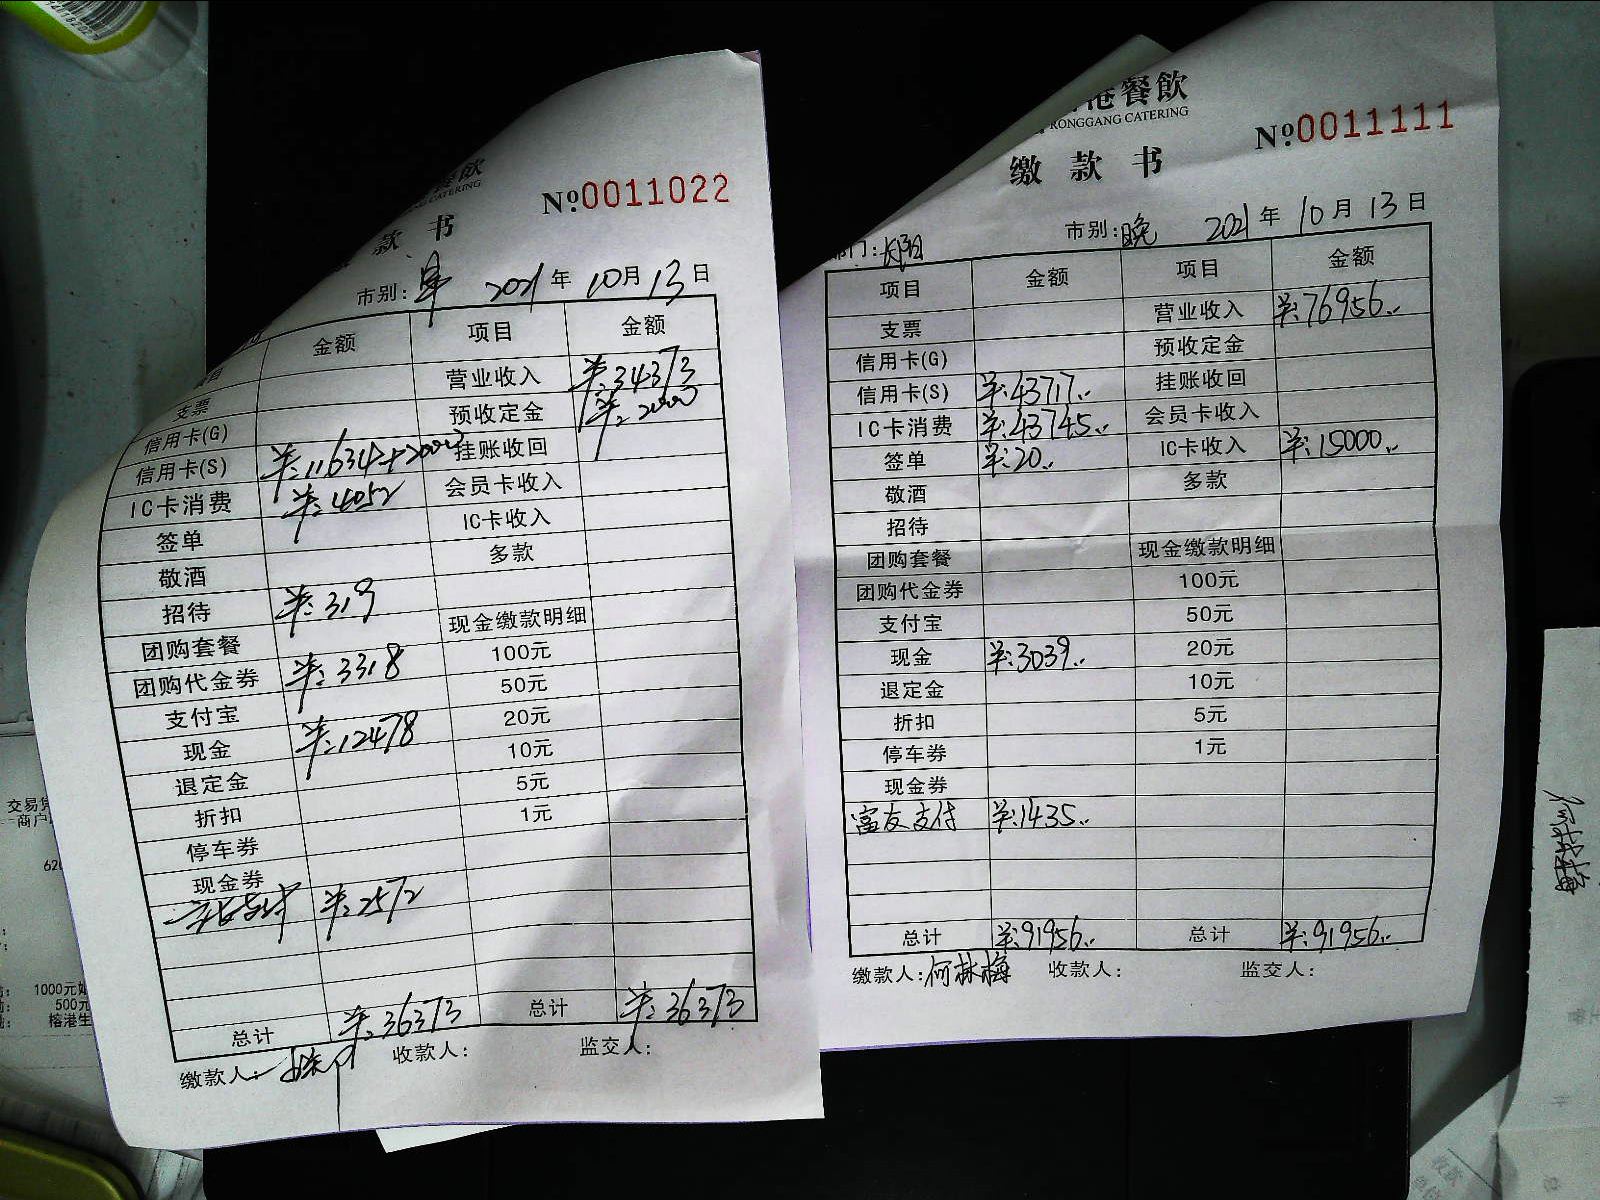 餐飲
CATERING
款 书
№0011022
市别: 2021年10月13日
金额 项目 金额
支票 营业收入 ¥:34373
信用卡(G) 预收定金 ¥:2000
信用卡(S) ¥:11634+2000 挂账收回
IC卡消费 ¥:4052 会员卡收入
签单 IC卡收入
敬酒 多款
招待 ¥:319
团购套餐 现金缴款明细
团购代金券 ¥:3318 100元
支付宝 50元
现金 ¥:12478 20元
退定金 10元
折扣 5元
停车券 1元
现金券
¥:2572
总计 ¥:36373 总计 ¥:36373
缴款人: 收款人: 监交人:
港餐飲
RONGGANG CATERING
缴 款 书
№0011111
部门: 市别:晚 2021年10月13日
项目 金额 项目 金额
支票 营业收入 ¥:76956..
信用卡(G) 预收定金
信用卡(S) ¥:43717.. 挂账收回
IC卡消费 ¥:43745.. 会员卡收入
签单 ¥:20.. IC卡收入 ¥:15000..
敬酒 多款
招待
团购套餐 现金缴款明细
团购代金券 100元
支付宝 50元
现金 ¥:3039.. 20元
退定金 10元
折扣 5元
停车券 1元
现金券
富友支付 ¥:1435..
总计 ¥:91956.. 总计 ¥:91956..
缴款人:何林梅 收款人: 监交人:
交易凭
商户
620
1000元
500元
榕港生